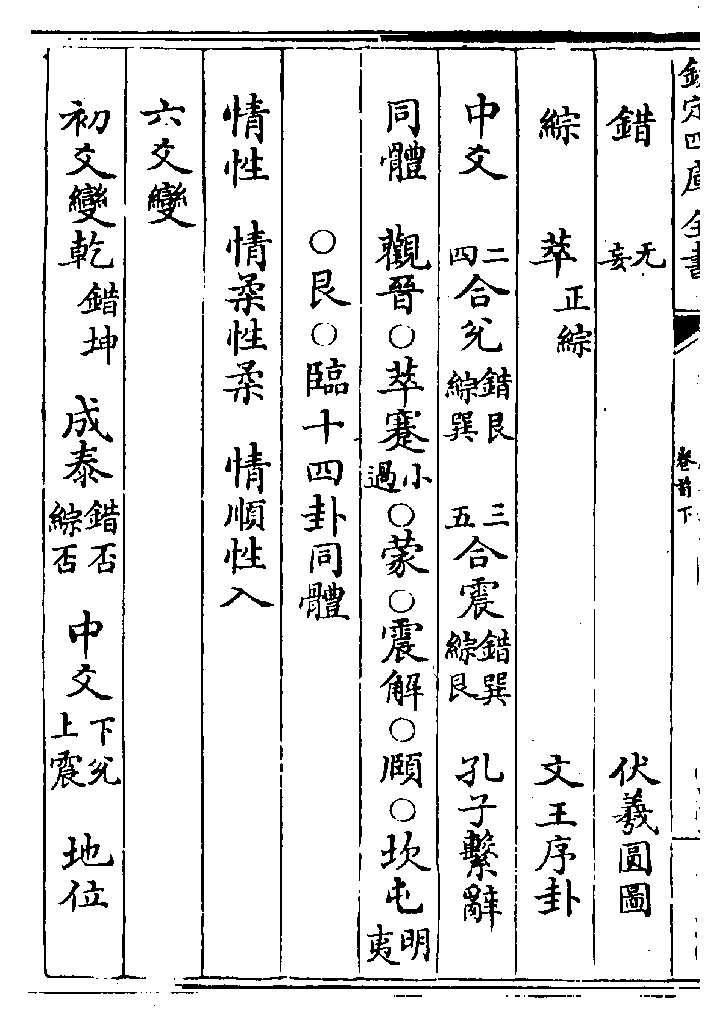 欽定四庫全書
卷首下
錯 无妄 伏羲圓圖
綜 萃正綜 文王序卦
中爻 二四合兊錯艮綜巽 三五合震錯巽綜艮 孔子繫辭
同體 觀晉○萃蹇小過○蒙○震解○頤○坎屯明夷
○艮○臨十四卦同體
情性 情柔性柔 情順性入
六爻變
初爻變乾錯坤 成泰錯否綜否 中爻下兊上震 地位